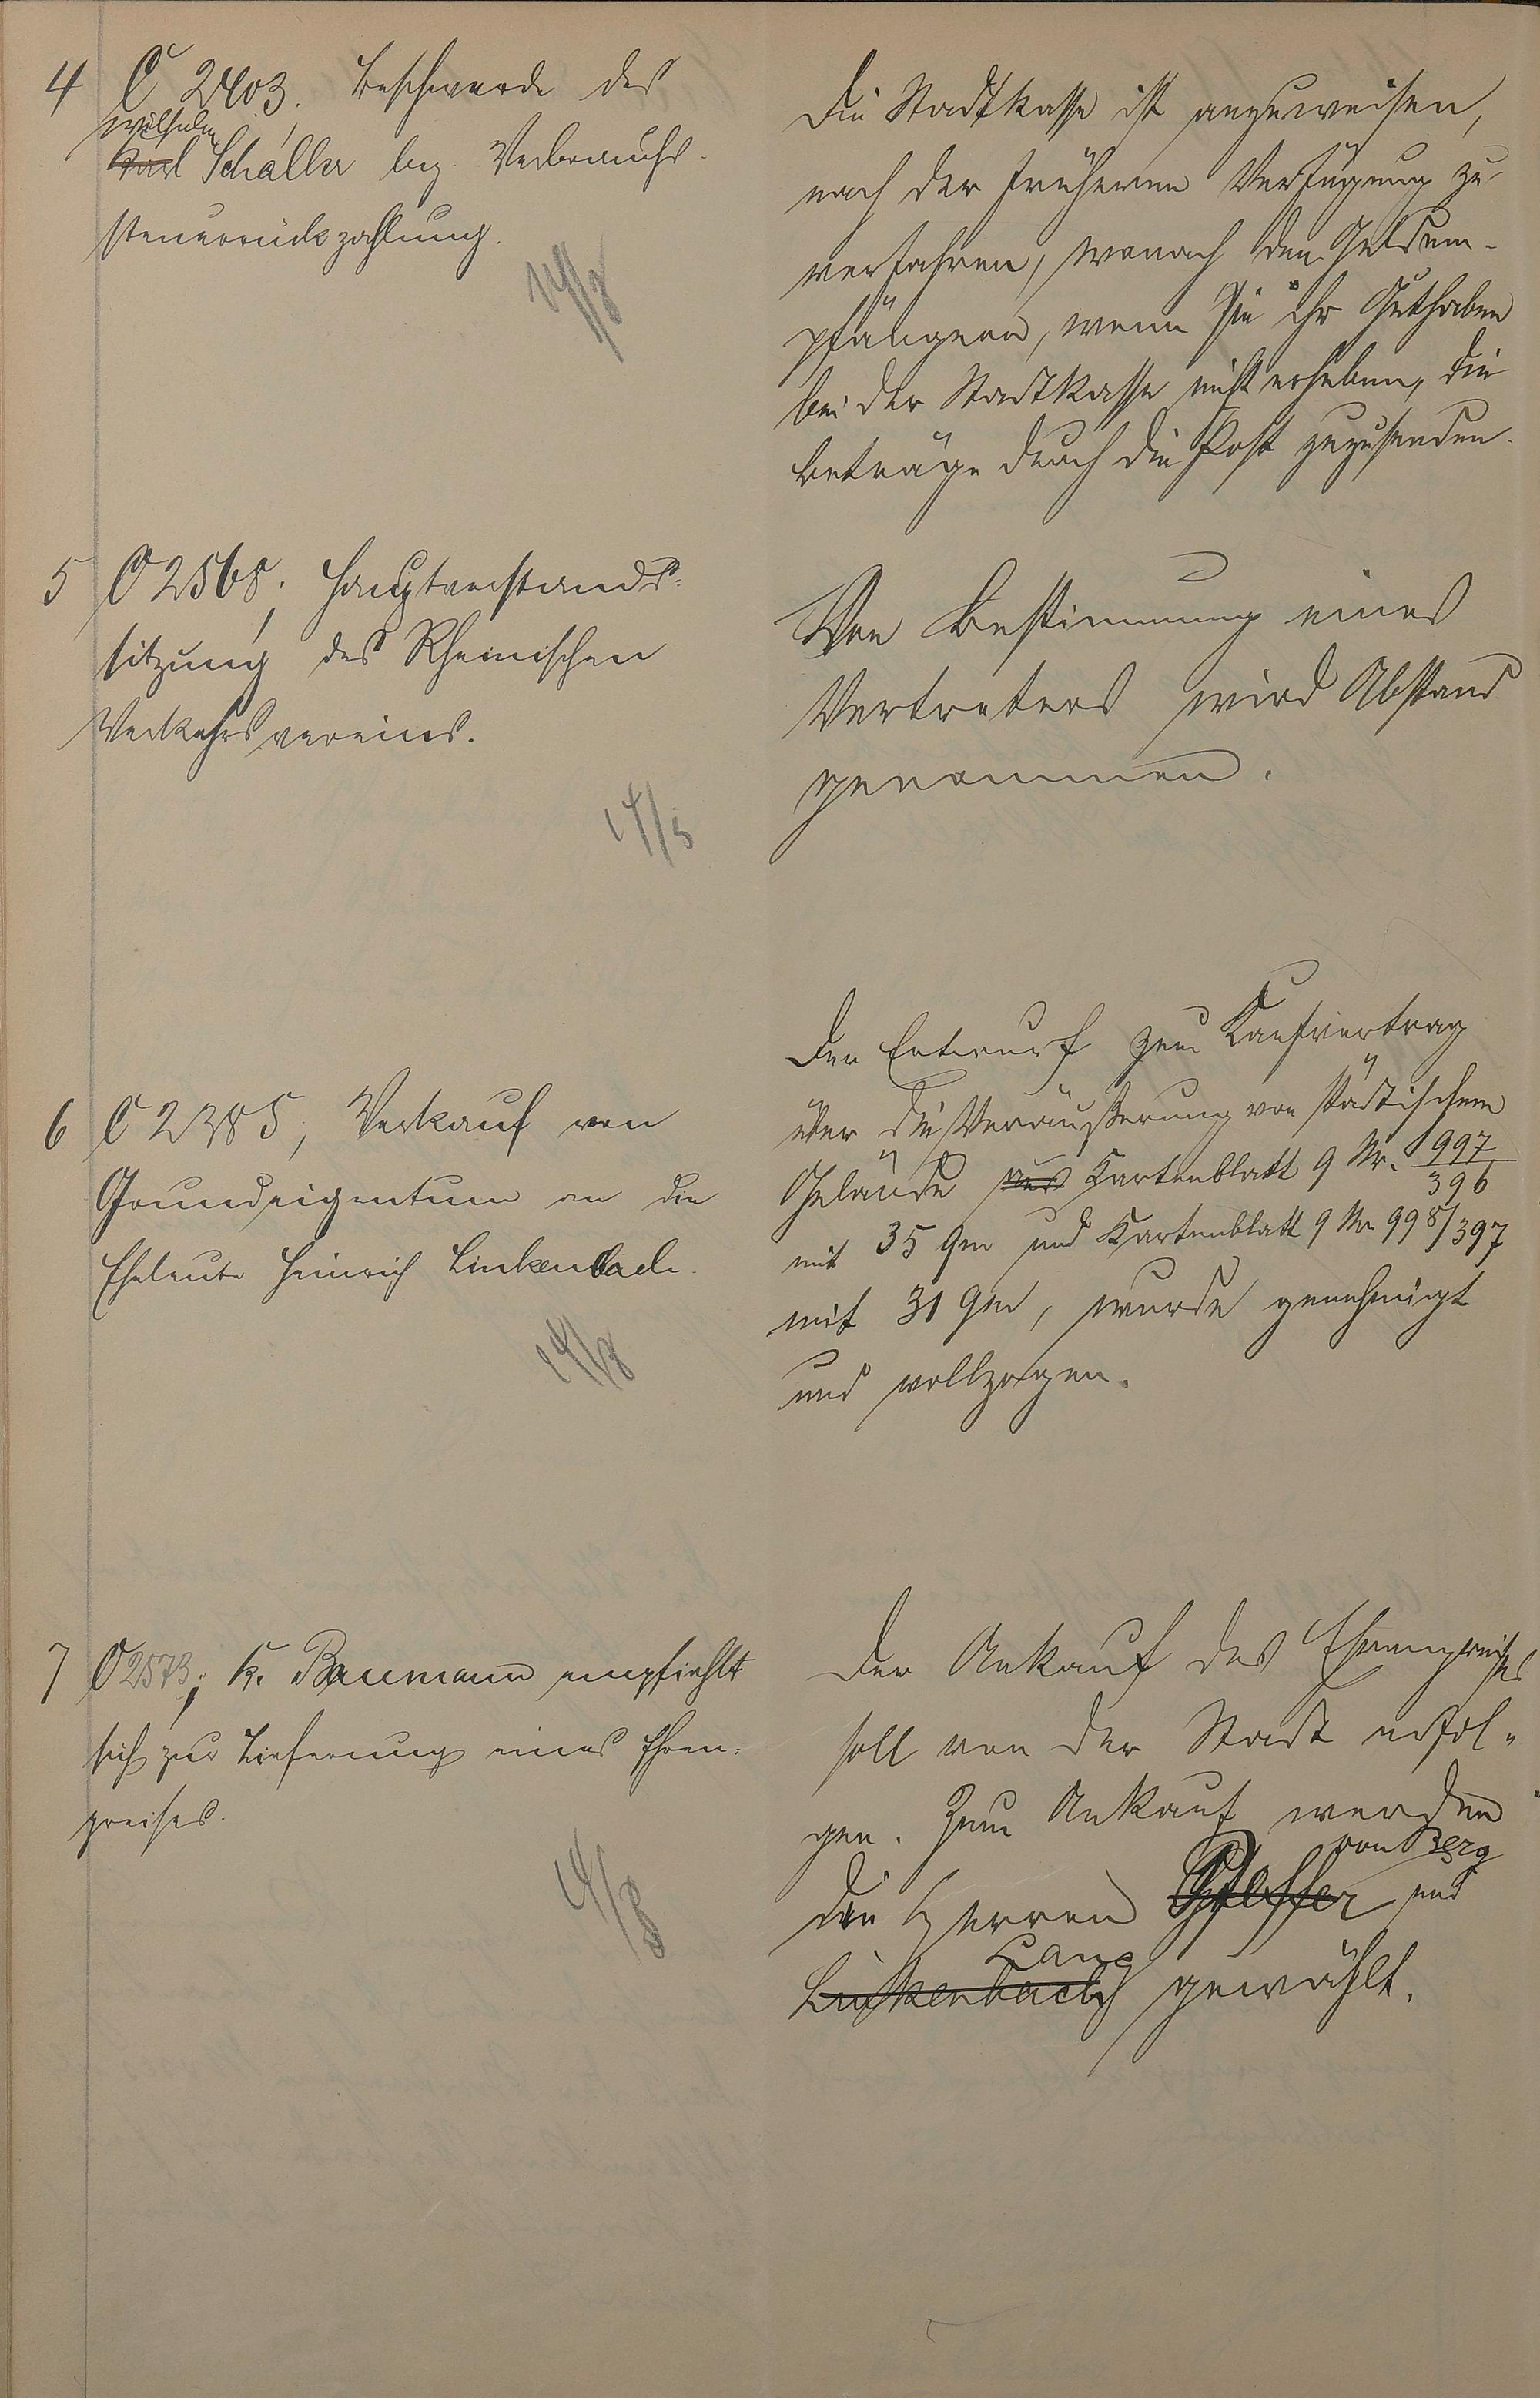 4 C 2403. Beschwerde des
Wilhelm
Karl Schaller bez. Verbrauchs-
steuerrückzahlung.
14/8
Die Stadtkasse ist anzuweisen,
nach der früheren Verfügung zu
verfahren, wonach den Geldem-
pfängern, wenn sie ihr Guthaben
bei der Stadtkasse nicht erheben, die
Beträge durch die Post zuzusenden.
5 C 2568; Hauptvorstands-
sitzung des Rheinischen
Verkehrsvereins.
14/8
Von Bestimmung eines
Vertreters wird Abstand
genommen.
6 C 2385; Verkauf von
Grundeigentum an die
Eheleute Heinrich Linkenbach.
14/8
Der Entwurf zum Kaufvertrag
über die Veräußerung von städtischem
Gelände aus Kartenblatt 9 Nr. 997/396
mit 35 qm und Kartenblatt 9 Nr 998/397
mit 31 qm, wurde genehmigt
und vollzogen.
7 C 2573; K. Baumann empfiehlt
sich zur Lieferung eines Ehren-
preises.
14/8
Der Ankauf des Ehrenpreises
soll von der Stadt erfol-
gen. Zum Ankauf werden
von Berg
die Herren Pfeffer und
Lang
Linkenbach gewählt.